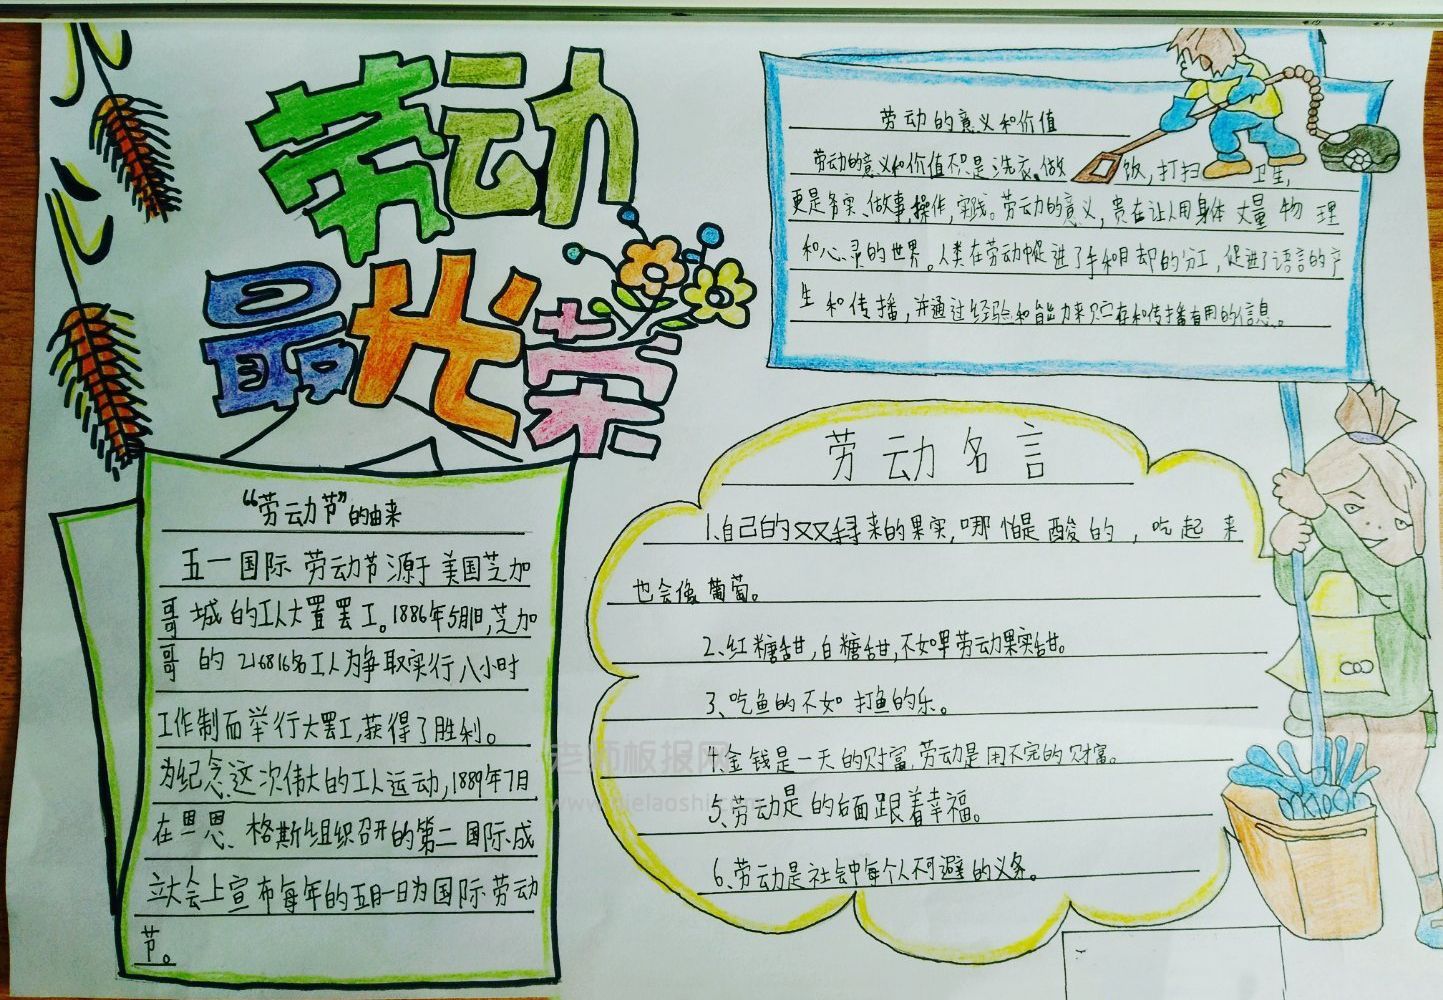 劳动
最光荣
劳动的意义和价值
劳动的意义和价值不只是洗衣、做饭,打扫卫生,
更是务实、做事、操作,实践。劳动的意义,贵在让人用身体丈量物理
和心灵的世界。人类在劳动中促进了手和目却的分工,促进了语言的产
生和传播,并通过经验和能力来贮存和传播有用的信息。
“劳动节”的由来
五一国际劳动节源于美国芝加
哥城的工人大置罢工。1886年5月1日,芝加
哥的216816名工人为争取实行八小时
工作制而举行大罢工,获得了胜利。
为纪念这次伟大的工人运动,1889年7月
在恩恩、格斯组织召开的第二国际成
立大会上宣布每年的五月一日为国际劳动
节。
劳动名言
1.自己的双手寻来的果实,哪怕是酸的,吃起来
也会像葡萄。
2、红糖甜,白糖甜,不如早劳动果实甜。
3、吃鱼的不如打鱼的乐。
4.金钱是一天的财富,劳动是用不完的财富。
5、劳动是的后面跟着幸福。
6、劳动是社会中每个人不可避的义务。
老师板报网